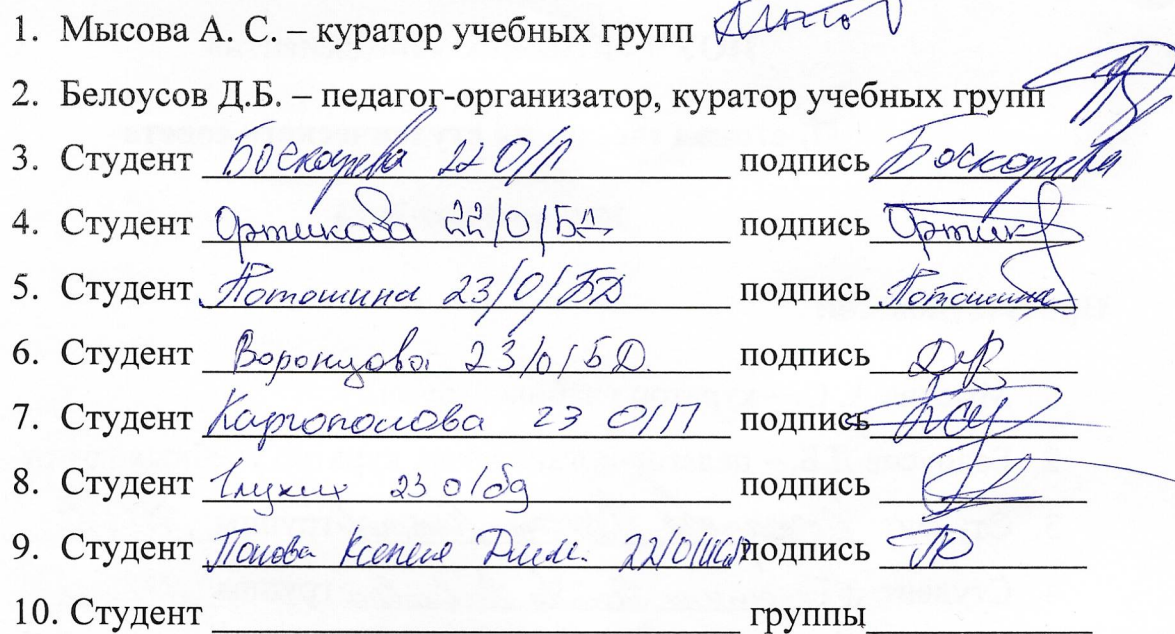 1. Мысова А. С. – куратор учебных групп
2. Белоусов Д.Б. – педагог-организатор, куратор учебных групп
3. Студент Боскарева 22 О/П подпись Боскарева
4. Студент Ортикова 22/О/БД подпись Ортик
5. Студент Потошина 23/О/БД подпись Потошина
6. Студент Воронцова 23/О/БД. подпись
7. Студент Каргополова 23 О/П подпись
8. Студент Глухих 23 о/бд подпись
9. Студент Попова Ксения Дмит. 22/О/ подпись
10. Студент группы